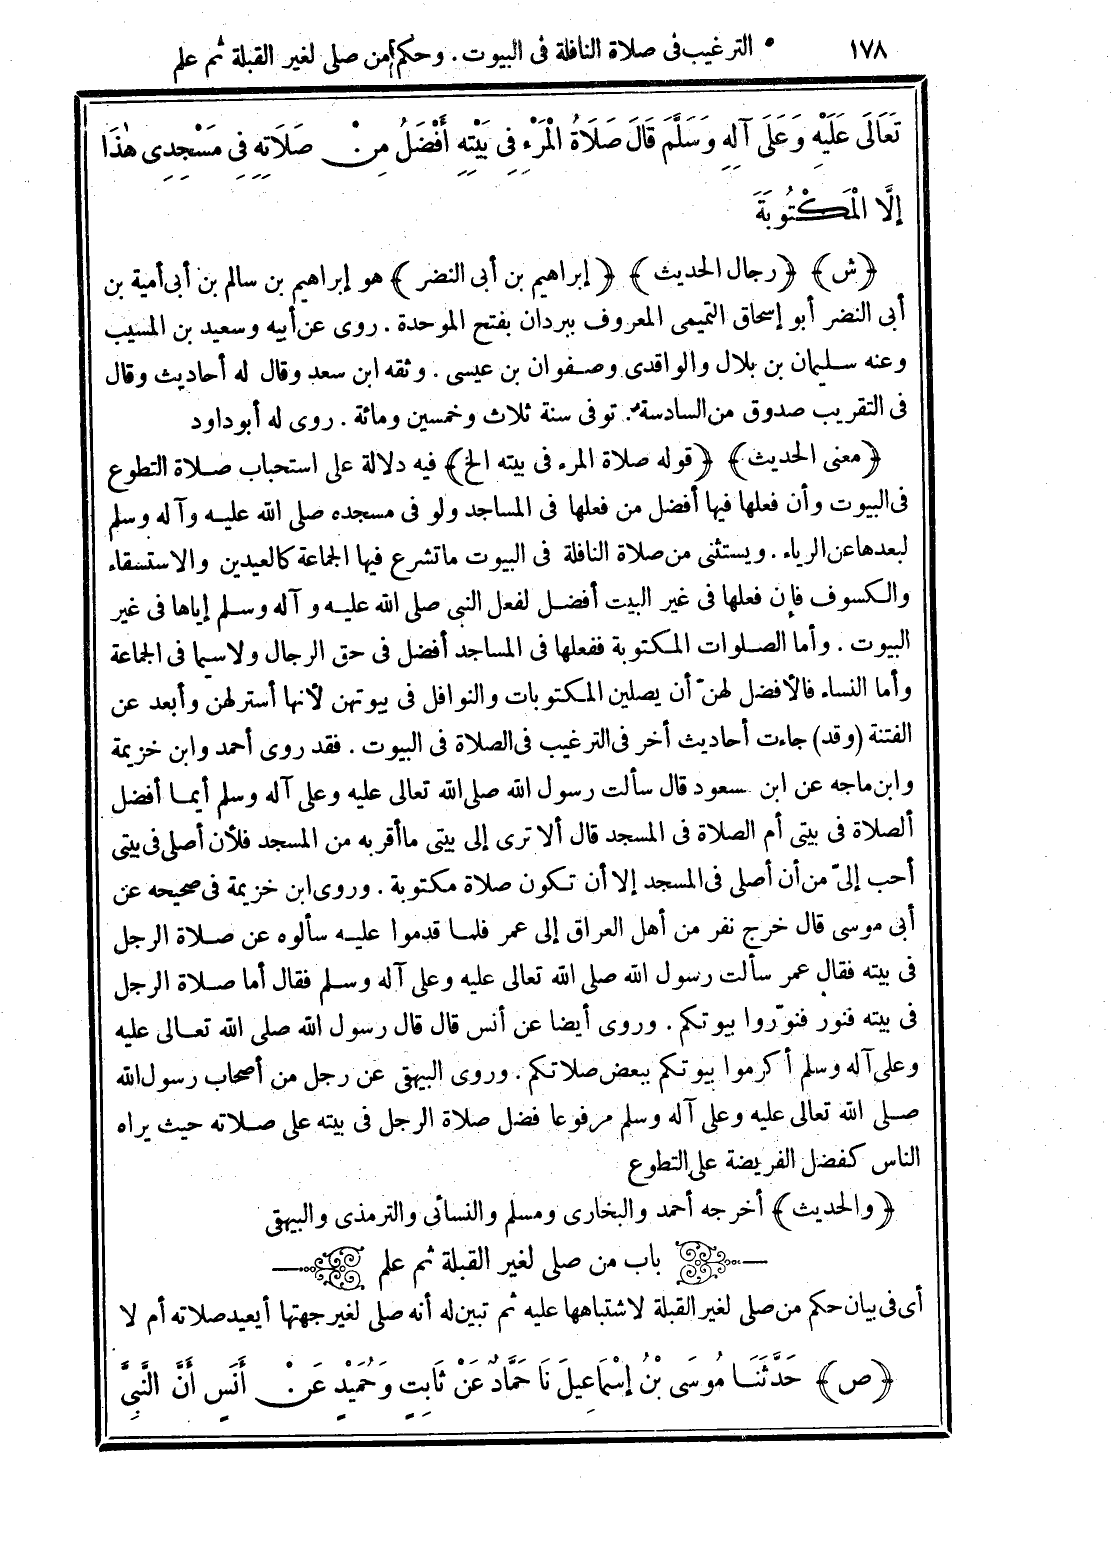 ١٧٨
الترغيب فى صلاة النافلة فى البيوت . وحكم من صلى لغير القبلة ثم علم
تَعَالَى عَلَيْهِ وَعَلَى آلِهِ وَسَلَّمَ قَالَ صَلَاةُ الْمَرْءِ فِى بَيْتِهِ أَفْضَلُ مِنْ صَلَاتِهِ فِى مَسْجِدِى هٰذَا
إِلَّا الْمَكْتُوبَةَ
﴿ش﴾ ﴿رجال الحديث﴾ ﴿إبراهيم بن أبى النضر﴾ هو إبراهيم بن سالم بن أبى أمية بن
أبى النضر أبو إسحاق التميمى المعروف ببردان بفتح الموحدة . روى عن أبيه وسعيد بن المسيب
وعنه سليمان بن بلال والواقدى وصفوان بن عيسى . وثقه ابن سعد وقال له أحاديث وقال
فى التقريب صدوق من السادسة . توفى سنة ثلاث وخمسين ومائة . روى له أبوداود
﴿معنى الحديث﴾ ﴿قوله صلاة المرء فى بيته الخ﴾ فيه دلالة على استحباب صلاة التطوع
فى البيوت وأن فعلها فيها أفضل من فعلها فى المساجد ولو فى مسجده صلى الله عليه وآله وسلم
لبعدها عن الرياء . ويستثنى من صلاة النافلة فى البيوت ماتشرع فيها الجماعة كالعيدين والاستسقاء
والكسوف فإن فعلها فى غير البيت أفضل لفعل النبى صلى الله عليه وآله وسلم إياها فى غير
البيوت . وأما الصلوات المكتوبة ففعلها فى المساجد أفضل فى حق الرجال ولاسيما فى الجماعة
وأما النساء فالأفضل لهنّ أن يصلين المكتوبات والنوافل فى بيوتهن لأنها أسترلهن وأبعد عن
الفتنة (وقد) جاءت أحاديث أخر فى الترغيب فى الصلاة فى البيوت . فقد روى أحمد وابن خزيمة
وابن ماجه عن ابن سعود قال سألت رسول الله صلى الله تعالى عليه وعلى آله وسلم أيما أفضل
ألصلاة فى بيتى أم الصلاة فى المسجد قال ألا ترى إلى بيتى ماأقربه من المسجد فلأن أصلى فى بيتى
أحب إلىّ من أن أصلى فى المسجد إلا أن تكون صلاة مكتوبة . وروى ابن خزيمة فى صحيحه عن
أبى موسى قال خرج نفر من أهل العراق إلى عمر فلما قدموا عليه سألوه عن صلاة الرجل
فى بيته فقال عمر سألت رسول الله صلى الله تعالى عليه وعلى آله وسلم فقال أما صلاة الرجل
فى بيته فنور فنوّروا بيوتكم . وروى أيضا عن أنس قال قال رسول الله صلى الله تعالى عليه
وعلى آله وسلم أكرموا بيوتكم ببعض صلاتكم . وروى البيهقى عن رجل من أصحاب رسول الله
صلى الله تعالى عليه وعلى آله وسلم مرفوعا فضل صلاة الرجل فى بيته على صلاته حيث يراه
الناس كفضل الفريضة على التطوع
﴿والحديث﴾ أخرجه أحمد والبخارى ومسلم والنسائى والترمذى والبيهقى
باب من صلى لغير القبلة ثم علم
أى فى بيان حكم من صلى لغير القبلة لاشتباهها عليه ثم تبين له أنه صلى لغير جهتها أيعيد صلاته أم لا
﴿ص﴾ حَدَّثَنَا مُوسَى بْنُ إِسْمَاعِيلَ نَا حَمَّادٌ عَنْ ثَابِتٍ وَحُمَيْدٍ عَنْ أَنَسٍ أَنَّ النَّبِىَّ